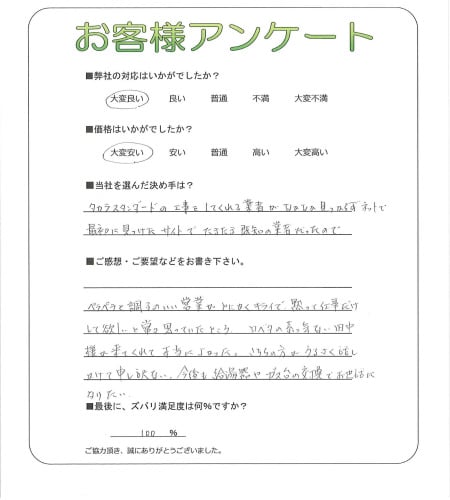 お客様アンケート
■弊社の対応はいかがでしたか？
大変良い 良い 普通 不満 大変不満
■価格はいかがでしたか？
大変安い 安い 普通 高い 大変高い
■当社を選んだ決め手は？
タカラスタンダードの工事をしてくれる業者がなかなか見つからずネットで
最初に見つけたサイトでたまたま 業者だったので
■ご感想・ご要望などをお書き下さい。
ペラペラと調子のいい営業がとにかくキライで、黙って仕事だけ
して欲しいと常々思っていたところ 口ベタの 気ない田中
様が来てくれて本当によかった。こちらの方がうるさく話し
かけて申し訳ない。今後も給湯器やガス台の交換でお世話に
なりたい
■最後に、ズバリ満足度は何%ですか？
100 %
ご協力頂き、誠にありがとうございました。